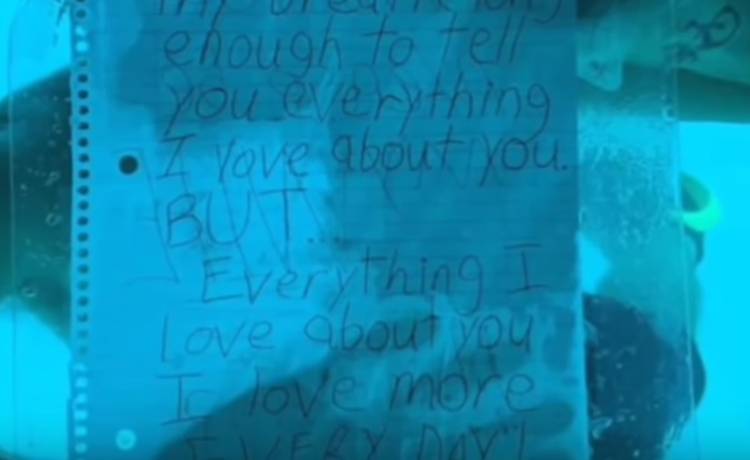 my breath long
enough to tell
you everything
I love about you.
BUT...
Everything I
Love about you
I love more
EVERY DAY"!